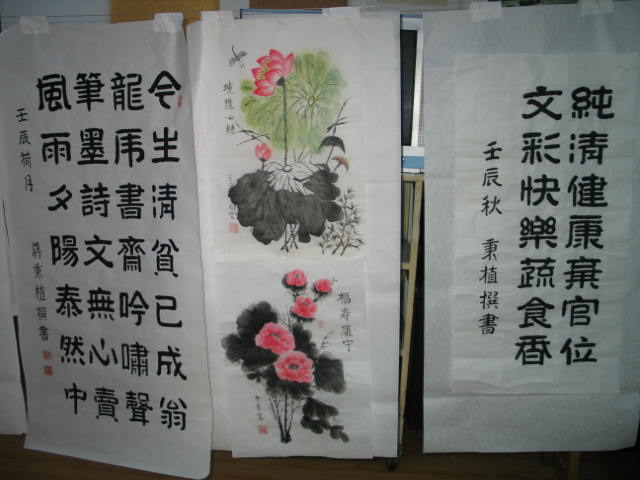 今生清貧已成翁
龍乕書齋吟嘯聲
筆墨詩文無心賣
風雨夕陽泰然中
壬辰荷月
蔣秉植撰書
境隨心轉
福壽康宁
純清健康棄官位
文彩快樂蔬食香
壬辰秋 秉植撰書